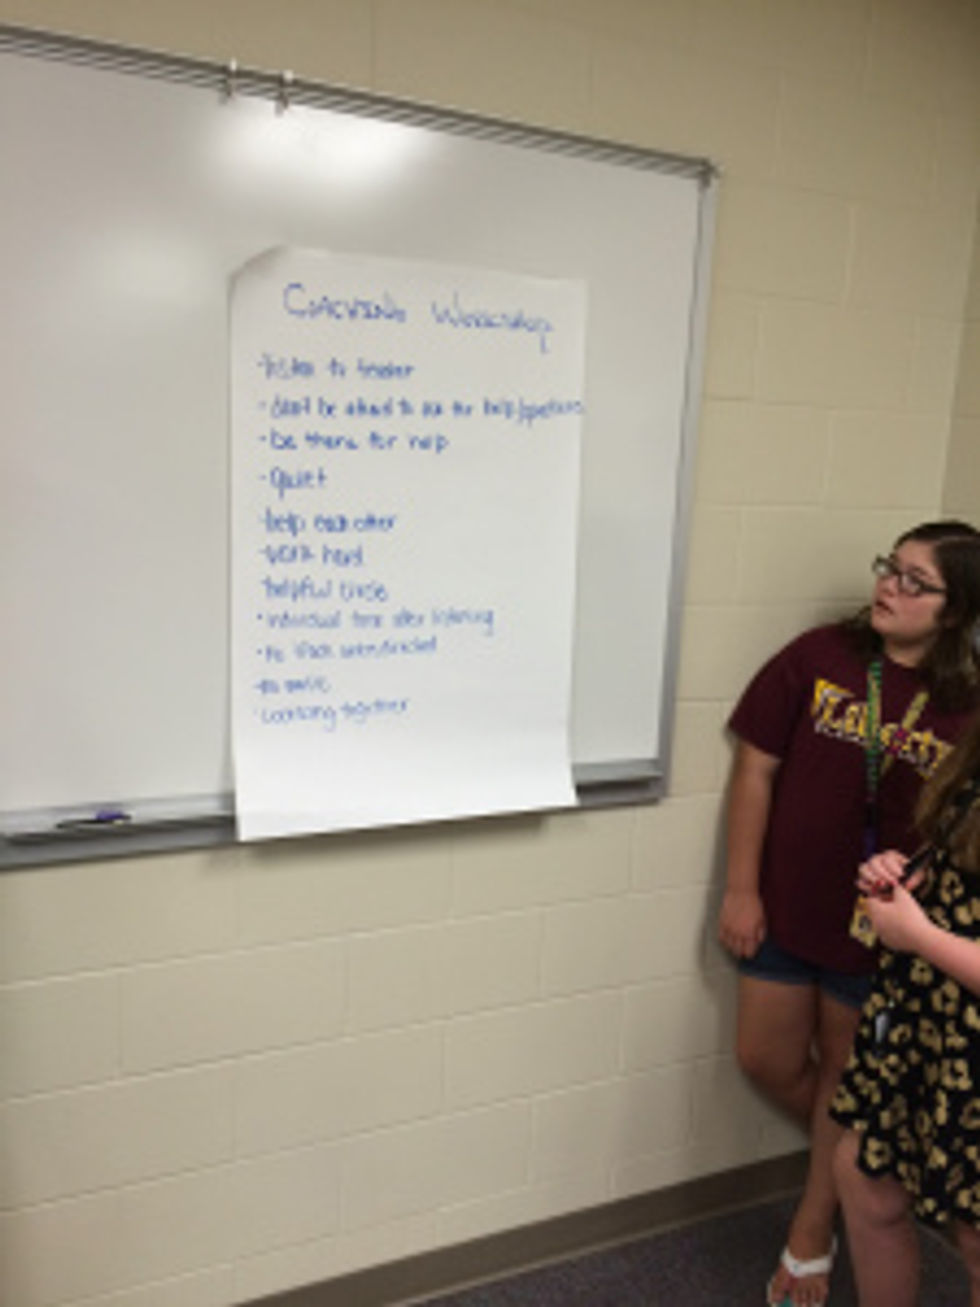 Coaching Workshop
-listen to teacher
-don't be afraid to ask for help/questions
-be there for help
-Quiet
-help each other
-work hard
helpful circle
•individual time after listening
•no
-no music
•working together
Liberty